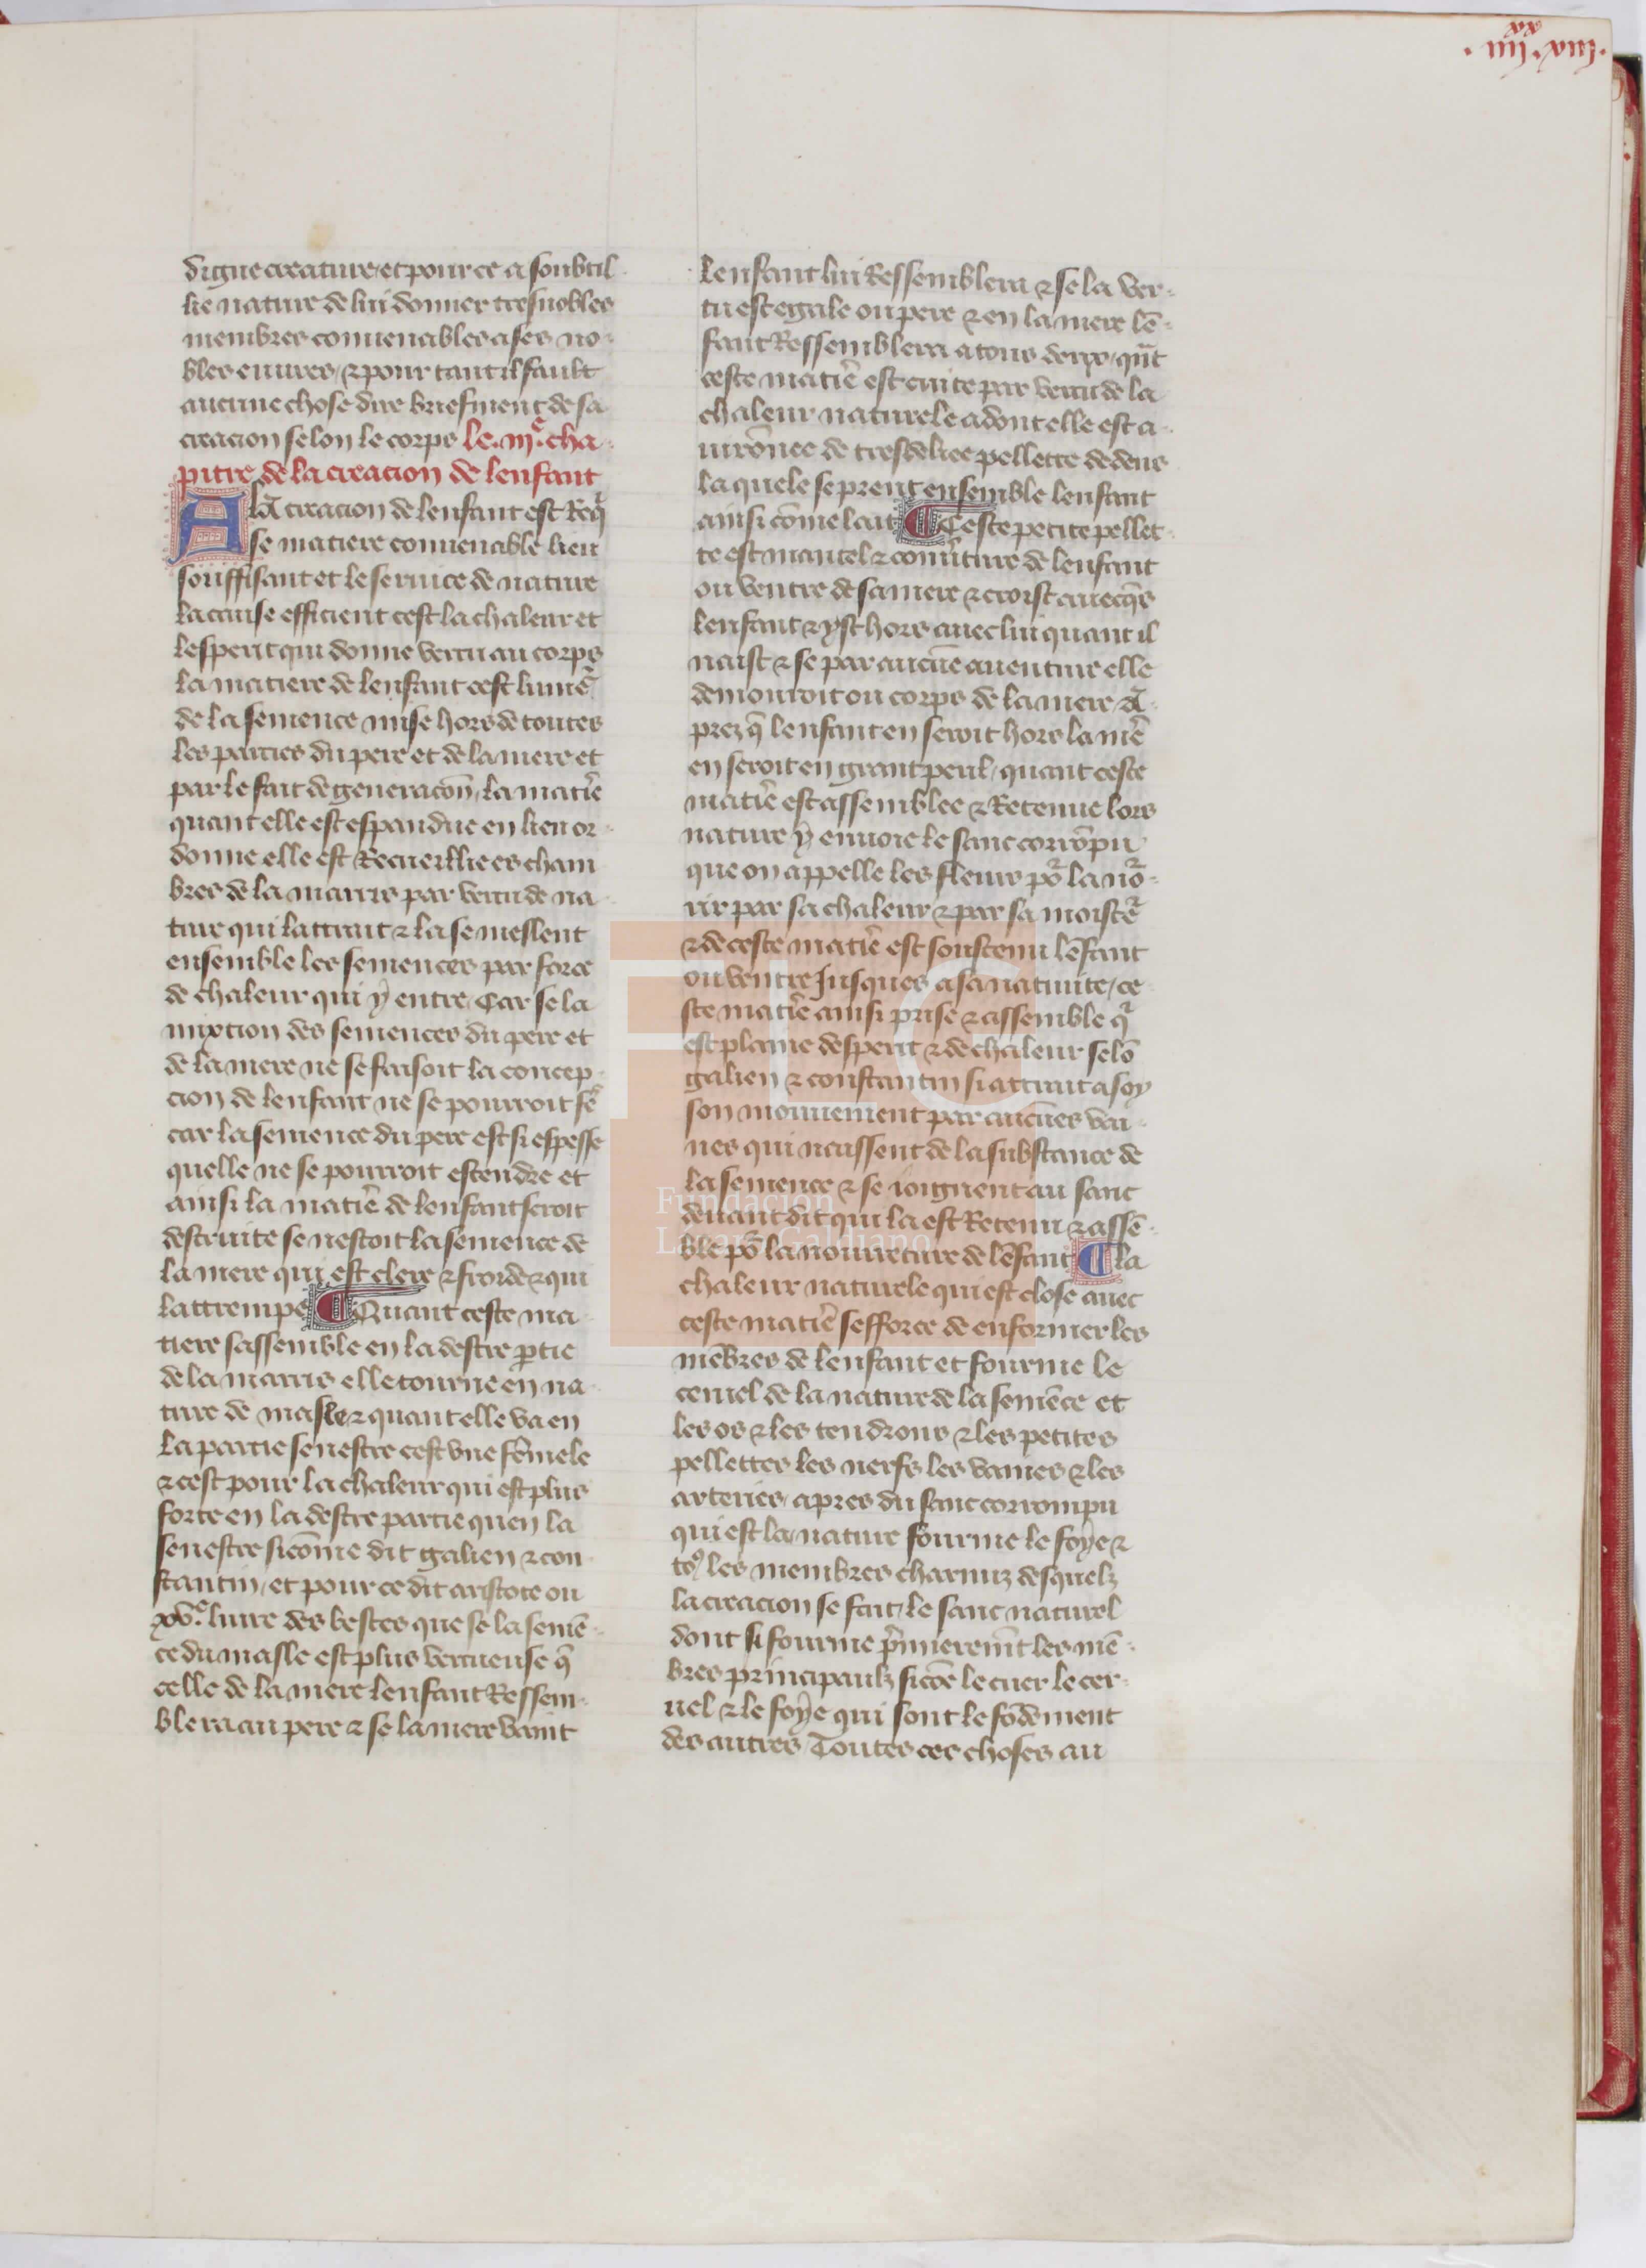 .iiii.xx xviij.
digne creature / et pour ce a soubtil
lie nature de lui donner tresnobles
membres conuenables a ses no-
bles euures / ⁊ pour tant il fault
aucune chose dire briefment de sa
creacion selon le corps le .iij.e cha-
pitre de la creacion de lenfant
A la creacion de lenfant est Reqͥ
se matiere conuenable lieu
souffisant et le seruice de nature
la cause efficient cest la chaleur et
lesperit qui donne vertu au corps
la matiere de lenfant cest lumeᷣ
de la semence mise hors de toutes
les parties du pere et de la mere et
par le fait de generacōn / la matiē
quant elle est espandue en lieu or-
donne elle est Recueillie es cham
bres de la marris par vertu de na-
ture qui lattrait ⁊ la se meslent
ensemble les semences par force
de chaleur qui ẏ entre / Car se la
mixtion des semences du pere et
de la mere ne se faisoit la concep-
cion de lenfant ne se pourroit fē
car la semence du pere est si espesse
quelle ne se pourroit estendre et
ainsi la matiē de lenfant seroit
destruite se nestoit la semence de
la mere qui est clere ⁊ froide ⁊ qui
lattrempe ¶ Quant ceste ma-
tiere sassemble en la destre ꝑtie
de la marris elle tourne en na-
ture de masle ⁊ quant elle va en
la partie senestre cest vne fēmele
⁊ cest pour la chaleur qui est plus
forte en la destre partie quen la
senestre sicōme dit galien ⁊ con-
stantin / et pour ce dit aristote ou
xv.e liure des bestes que se la semē-
ce du masle est plus vertueuse q̄
celle de la mere lenfant Ressem-
blera au pere ⁊ se la mere vaint
lenfant lui Ressemblera ⁊ se la ver-
tu est egale ou pere ⁊ en la mere lē-
fant Ressemblera a tous deux / qn̄t
ceste matiē est cuite par vertu de la
chaleur naturele adont elle est a-
uirōnee de tresdeliee pellette dedens
la quele se prent ensemble lenfant
ainsi cōme lait ¶ Ceste petite pellet-
te est mantel ⁊ couūture de lenfant
ou ventre de sa mere ⁊ croist auecq̄s
lenfant ⁊ yst hors auec lui quant il
naist ⁊ se par aucūe auenture elle
demouroit ou corps de la mere a-
prez q̄ lenfant en seroit hors la mē
en seroit en grant peril / quant ceste
matiē est assemblee ⁊ Retenue lors
nature ẏ enuoie le sanc corrōpu
que on appelle les fleurs poᷣ la noᷣ-
rir par sa chaleur ⁊ par sa moisteᷣ
⁊ de ceste matiē est soustenu lēfant
ou ventre Jusques a sa natiuite / ce-
ste matiē ainsi prise ⁊ assemble qͥ
est plaine desperit ⁊ de chaleur selō
galien ⁊ constantin si attrait a soy
son mouuement par aucūes vai-
nes qui naissent de la substance de
la semence ⁊ se ioignent au sanc
deuant dit qui la est Retenu ⁊ assē-
ble poᷣ la nourreture de lēfant ¶ la
chaleur naturele qui est close auec
ceste matiē sefforce de enformer les
mēbres de lenfant et fourme le
ceruel de la nature de la semēce et
les os ⁊ les tendrons ⁊ les petites
pellettes les nerfs les vaines ⁊ les
arteries / apres du sanc corrompu
qui est la / nature fourme le foẏe ⁊
toꝰ les membres charnuz desquelz
la creacion se fait / le sanc naturel
dont si fourme p̄mieremēt les mē-
bres principaulz sicōe le cuer le cer-
uel ⁊ le foẏe qui sont le fōdement
des autres Toutes ces choses au
Fundación
Lázaro Galdiano
FLG